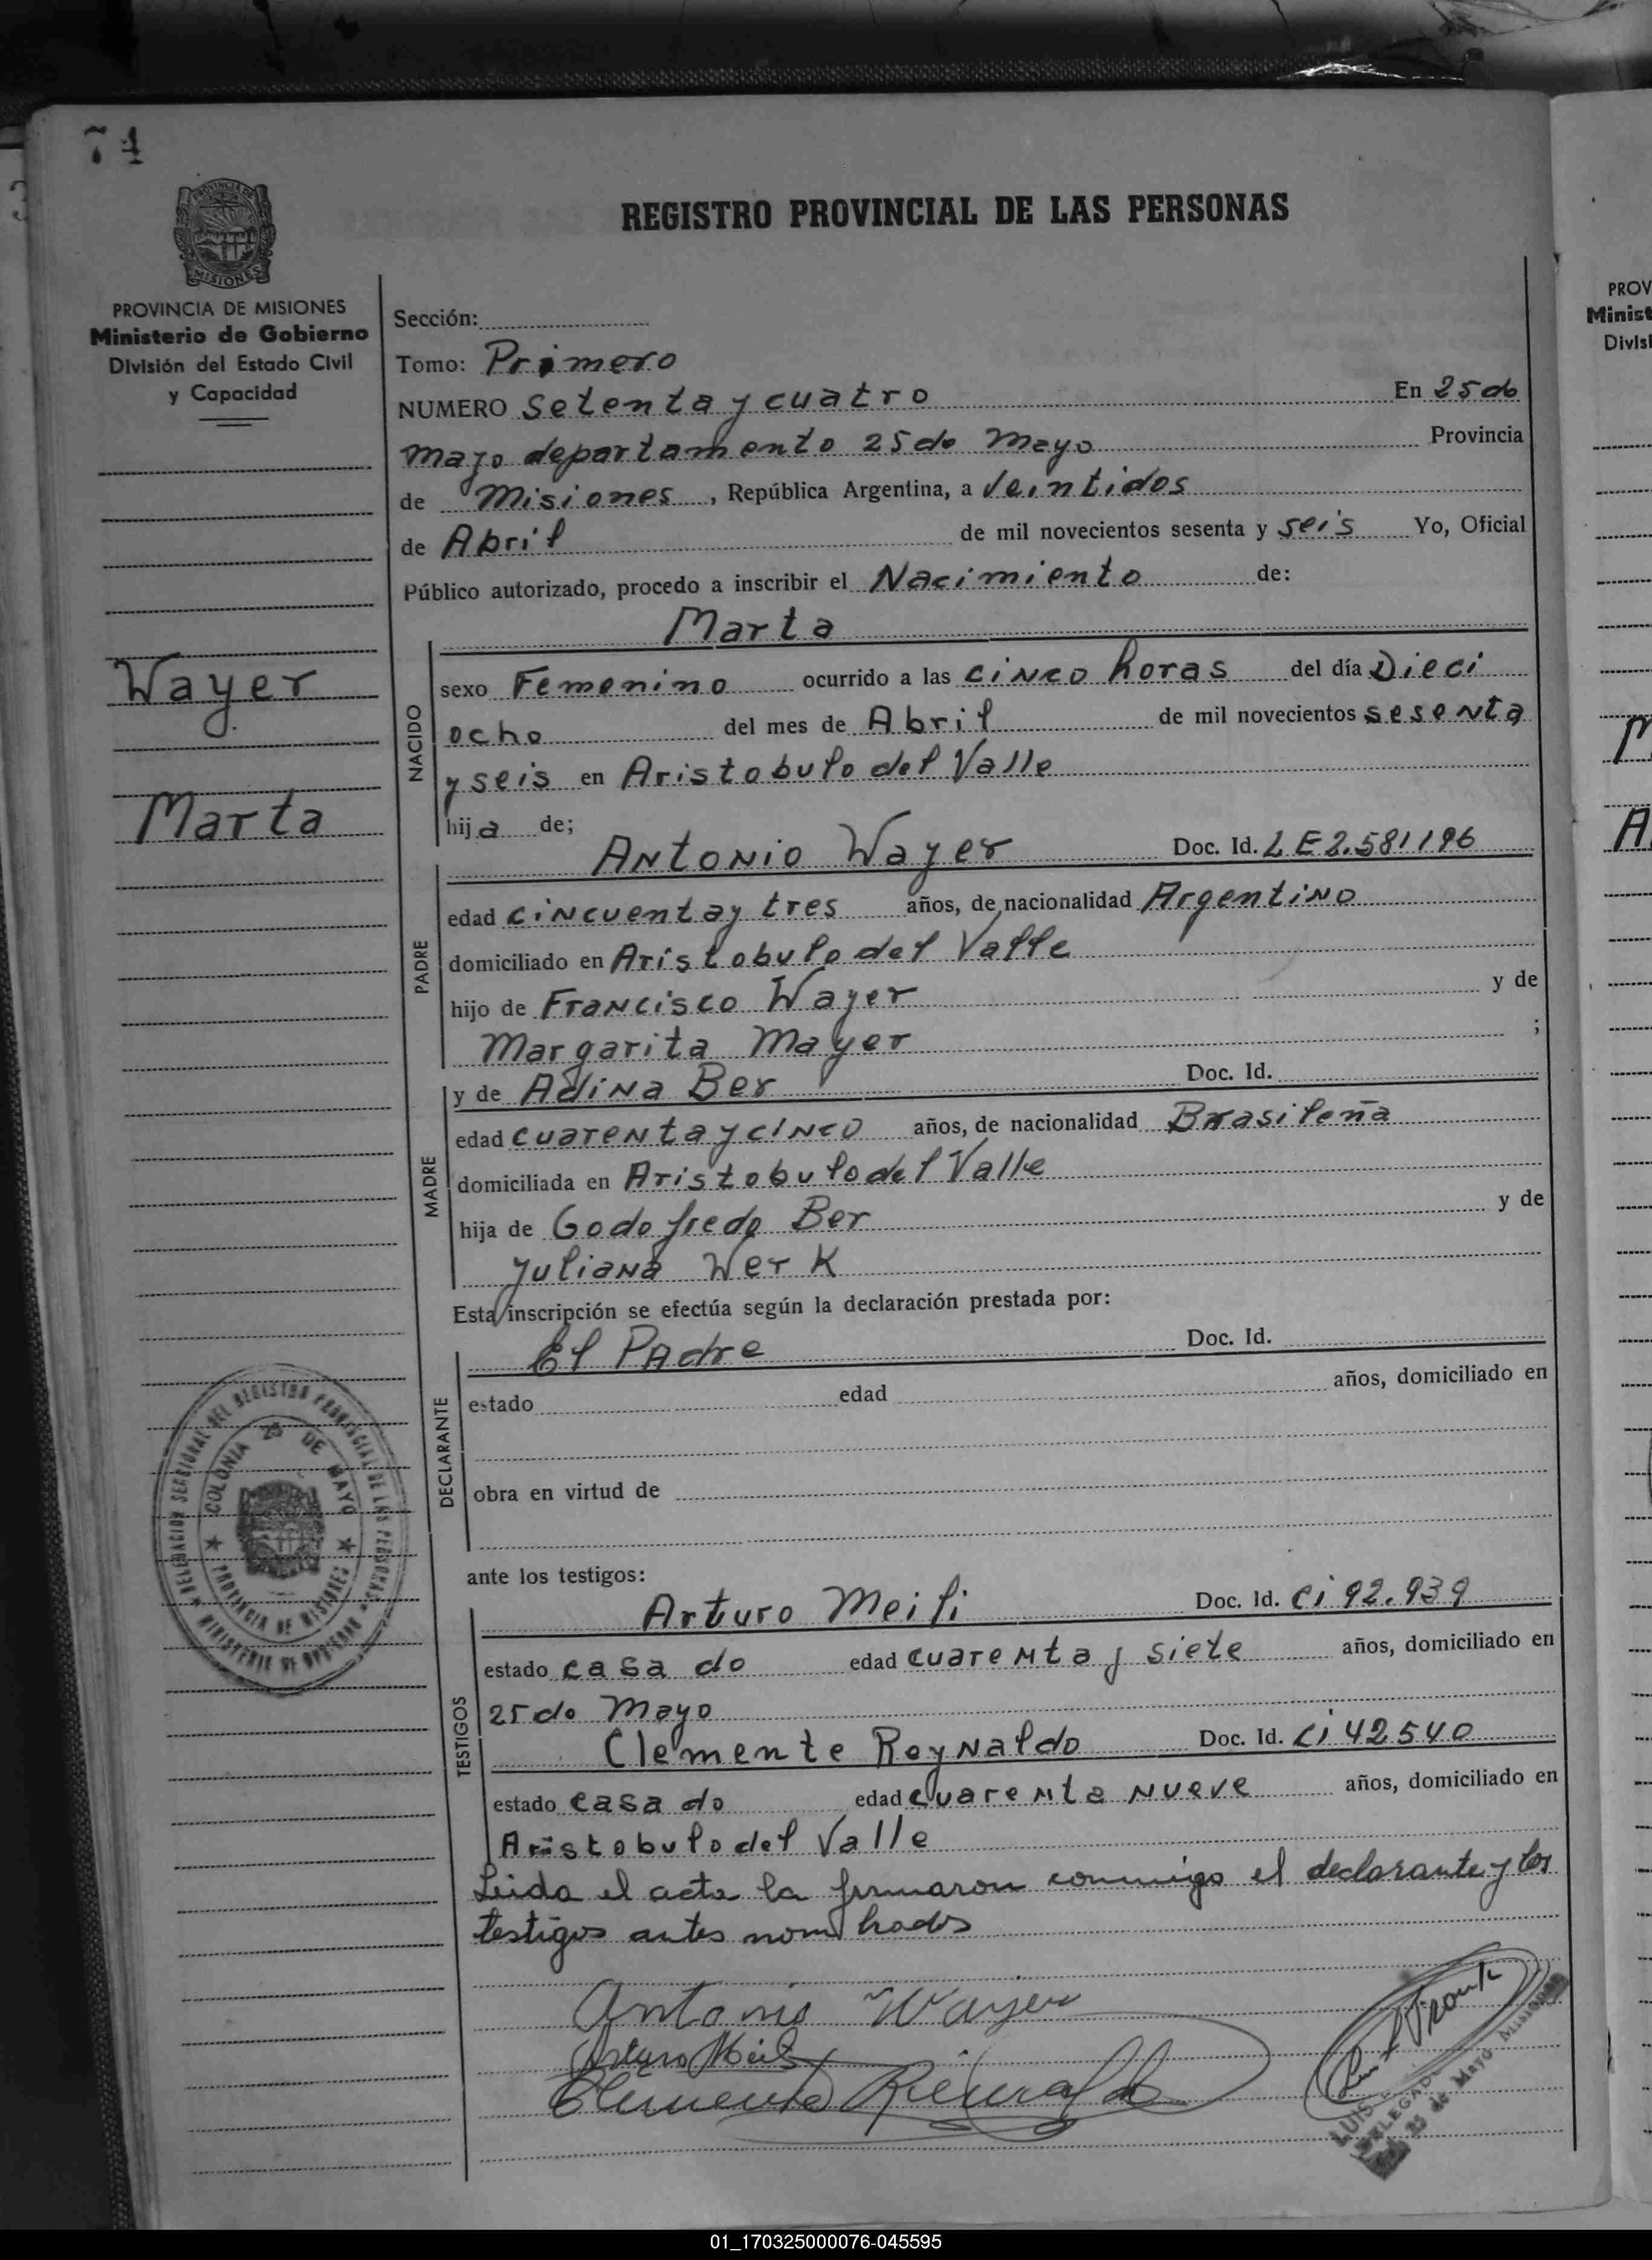 74
PROVINCIA DE
MISIONES
REGISTRO PROVINCIAL DE LAS PERSONAS
PROVINCIA DE MISIONES
Ministerio de Gobierno
División del Estado Civil
y Capacidad
Sección:
Tomo: Primero
NUMERO setenta y cuatro En 25 de
mayo departamento 25 de mayo Provincia
de Misiones, República Argentina, a veintidos
de Abril de mil novecientos sesenta y seis Yo, Oficial
Público autorizado, procedo a inscribir el Nacimiento de:
Marta
Wayer
Marta
NACIDO
sexo Femenino ocurrido a las cinco horas del día Dieci
ocho del mes de Abril de mil novecientos sesenta
y seis en Aristobulo del Valle
hija de;
Antonio Wayer Doc. Id. LE 2.581196
PADRE
edad cincuenta y tres años, de nacionalidad Argentino
domiciliado en Aristobulo del Valle
hijo de Francisco Wayer y de
Margarita Mayer ;
y de Adina Ber Doc. Id.
MADRE
edad cuarenta y cinco años, de nacionalidad Brasileña
domiciliada en Aristobulo del Valle
hija de Godofredo Ber y de
Juliana Werk
Esta inscripción se efectúa según la declaración prestada por:
El Padre Doc. Id.
DECLARANTE
estado edad años, domiciliado en
obra en virtud de
ante los testigos:
Arturo Meili Doc. Id. Ci 92.939
TESTIGOS
estado casado edad cuarenta y siete años, domiciliado en
25 de Mayo
Clemente Reynaldo Doc. Id. Ci 42.540
estado casado edad cuarenta nueve años, domiciliado en
Aristobulo del Valle
Leida el acta la firmaron conmigo el declarante y los
testigos antes nombrados
Antonio Wayer
Arturo Meili
Clemente Reinaldo
LUIS
DELEGADO
25 de Mayo Misiones
DELEGACION SECCIONAL DEL REGISTRO PROVINCIAL DE LAS PERSONAS
MINISTERIO DE GOBIERNO
COLONIA 25 DE MAYO
PROVINCIA DE MISIONES
PROV
Minist
Divisi
M
A
01_170325000076-045595